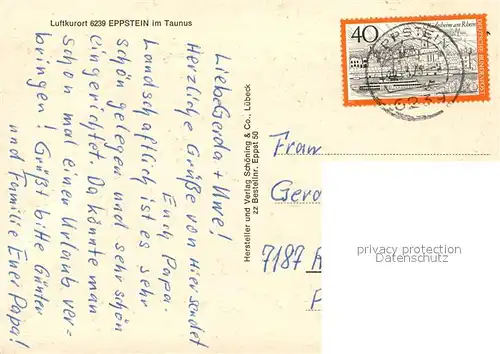 Luftkurort 6239 EPPSTEIN im Taunus
Liebe Gerda + Uwe!
Herzliche Grüße von hier sendet
Euch Papa.
Landschaftlich ist es sehr
schön gelegen und sehr schön
eingerichtet. Da könnte man
schon mal einen Urlaub ver-
bringen! Grüßt bitte Günter
und Familie Euer Papa!
Hersteller und Verlag Schöning & Co., Lübeck
zz Bestellnr. Eppst 50
40
Rüdesheim am Rhein
DEUTSCHE BUNDESPOST
EPPSTEIN
Frau
Gerd
7187
privacy protection
AnsichtskartenHandel.de